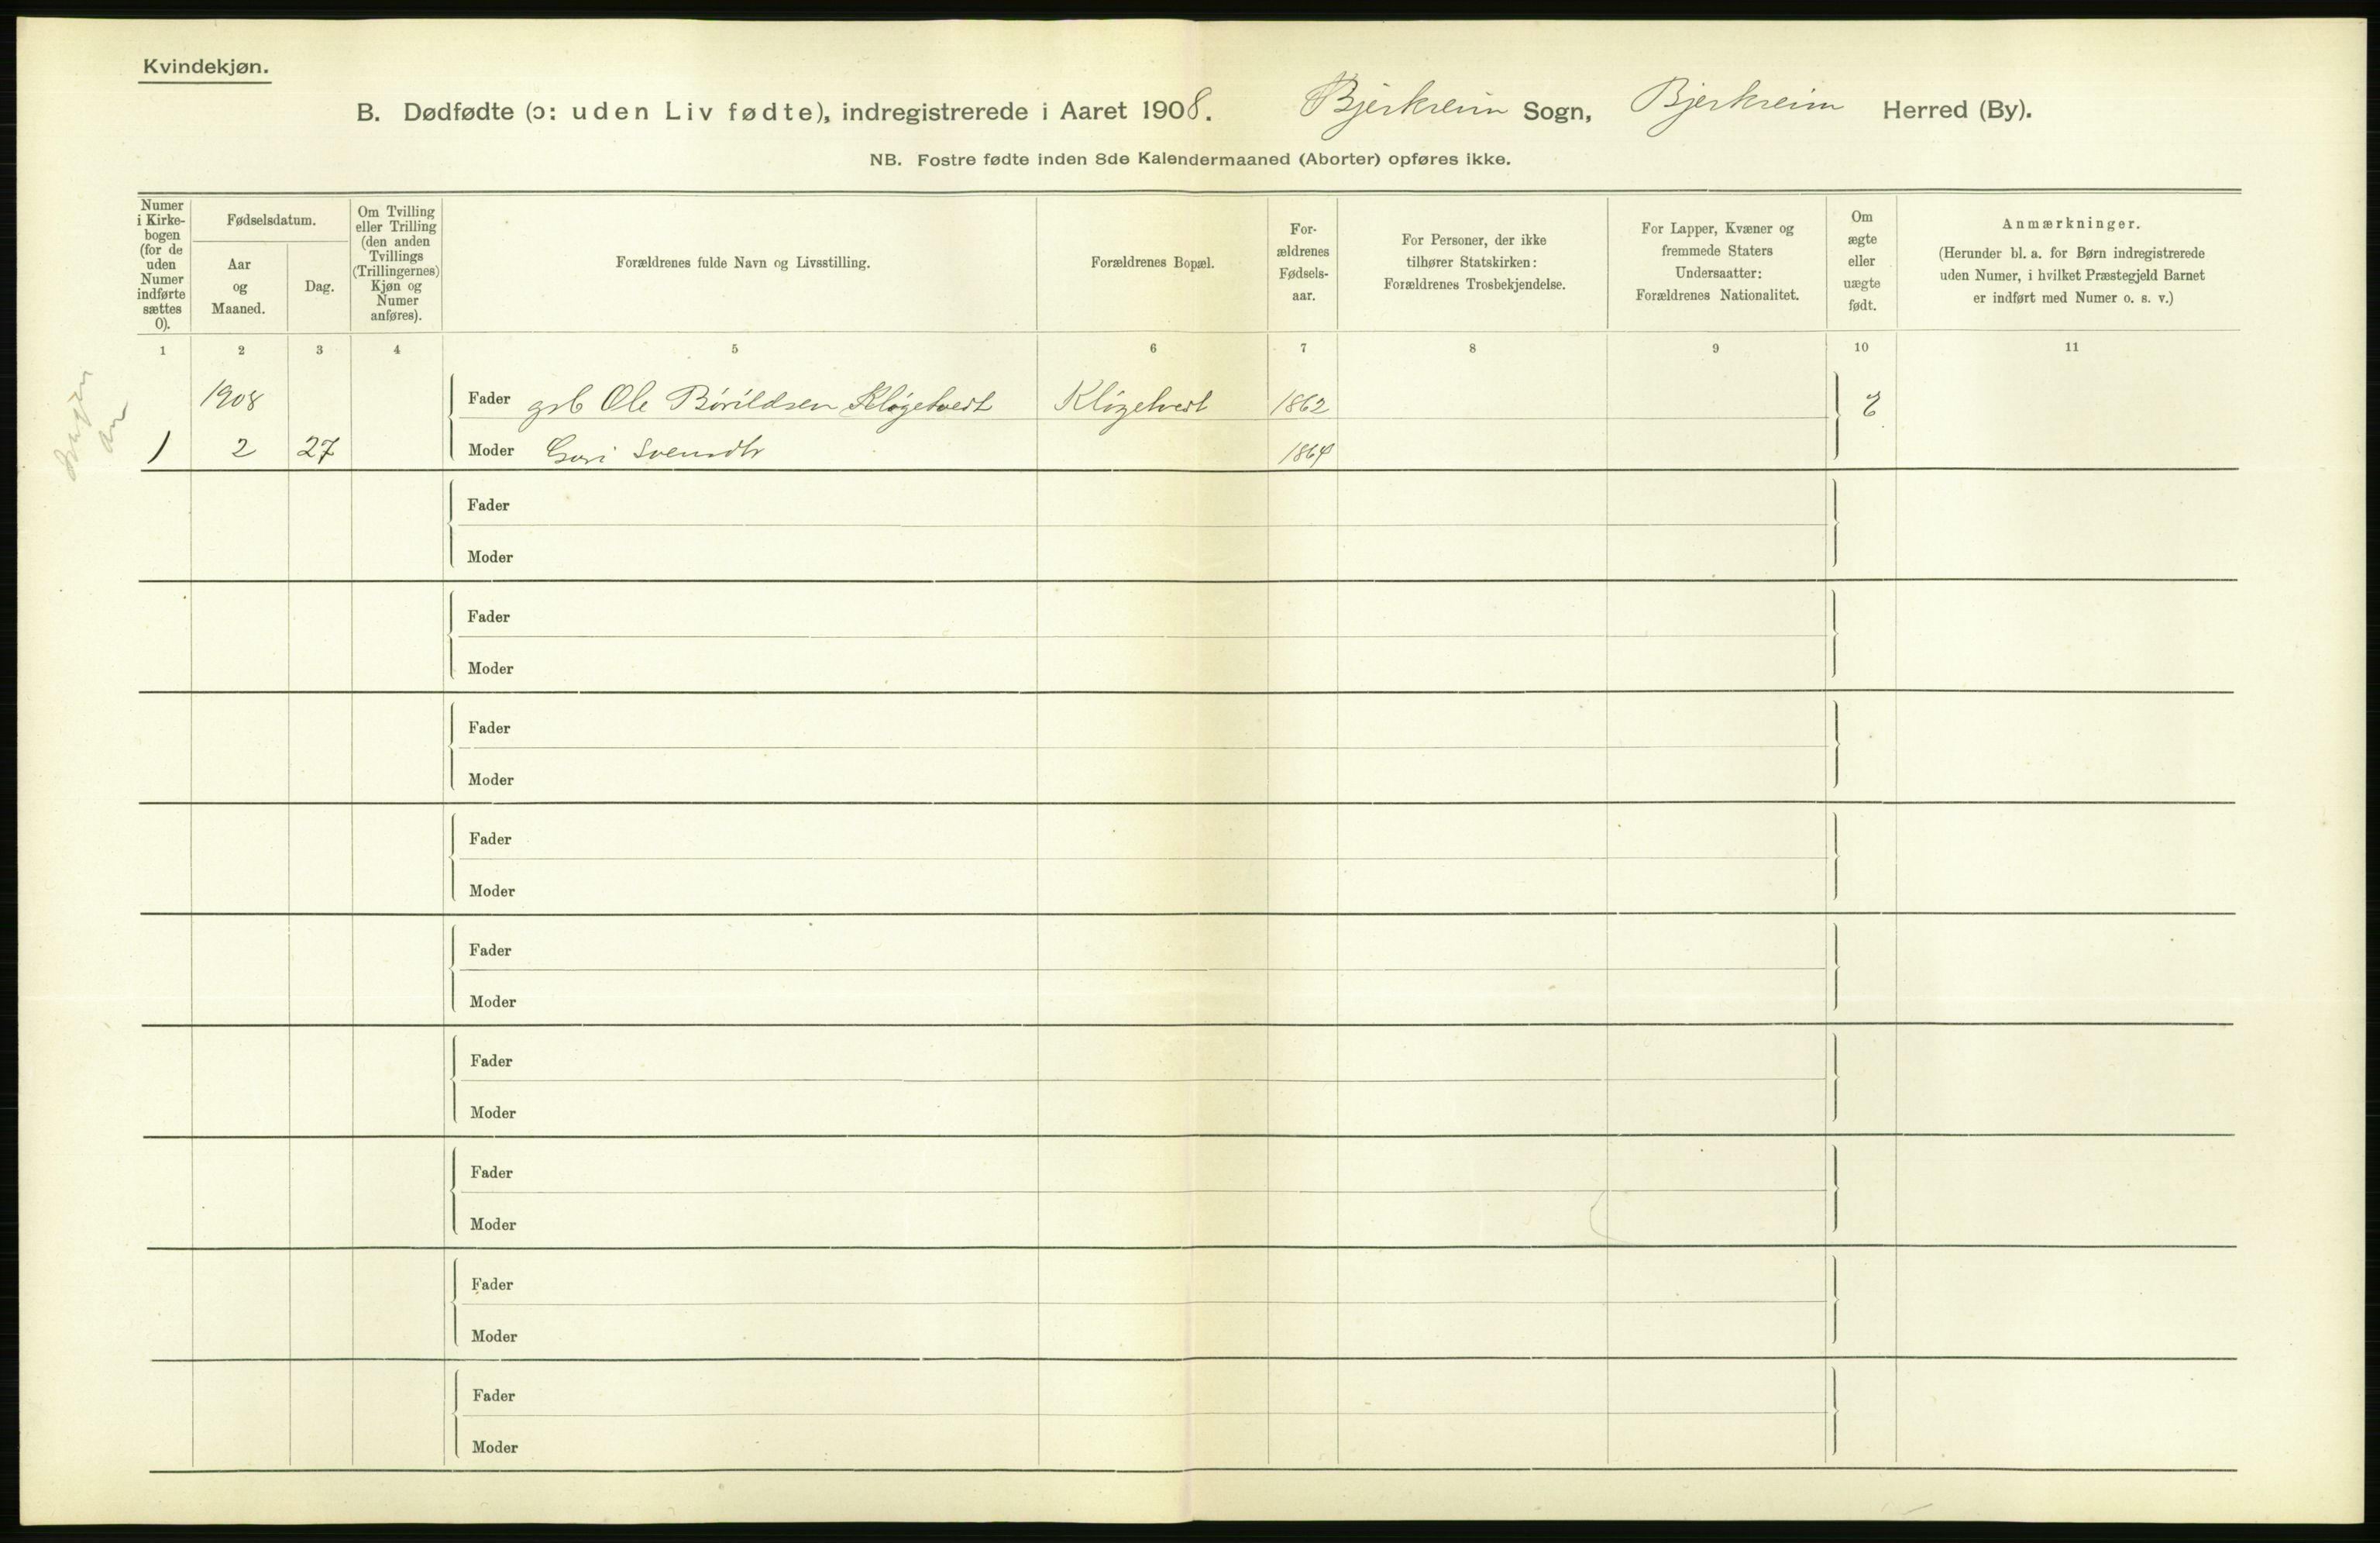 Kvindekjøn.
B. Dødfødte (ɔ: uden Liv fødte), indregistrerede i Aaret 1908. Bjerkreim Sogn, Bjerkreim Herred (By).
NB. Fostre fødte inden 8de Kalendermaaned (Aborter) opføres ikke.
Numer
i Kirke-
bogen
(for de
uden
Numer
indførte
sættes
0).
Fødselsdatum.
Aar
og
Maaned.
Dag.
Om Tvilling
eller Trilling
(den anden
Tvillings
(Trillingernes)
Kjøn og
Numer
anføres).
Forældrenes fulde Navn og Livsstilling.
Forældrenes Bopæl.
For-
ældrenes
Fødsels-
aar.
For Personer, der ikke
tilhører Statskirken:
Forældrenes Trosbekjendelse.
For Lapper, Kvæner og
fremmede Staters
Undersaatter:
Forældrenes Nationalitet.
Om
ægte
eller
uægte
født.
Anmærkninger.
(Herunder bl. a. for Børn indregistrerede
uden Numer, i hvilket Præstegjeld Barnet
er indført med Numer o. s. v.)
1 2 3 4 5 6 7 8 9 10 11
1908 Fader grb Ole Børíldsen Kløgetvedt Kløgetvedt 1862 E
1 2 27 Moder Guri Svendtr 1864
Fader
Moder
Fader
Moder
Fader
Moder
Fader
Moder
Fader
Moder
Fader
Moder
Fader
Moder
Fader
Moder
Fader
Moder